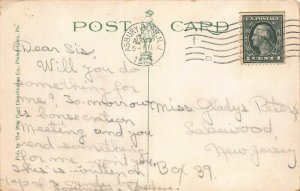 POST CARD
ASBURY PARK, N.J.
Pub. by The Post Card Distributing Co., Philadelphia, Pa.
Dear Sis
Will you do
something for
me? To-morrow
is Consecration
Meeting and you
read something
for me, won't you
This is written on
top of
Miss Gladys Peters
Lakewood
New Jersey
Box 39.
U.S. POSTAGE
1 CENT 1